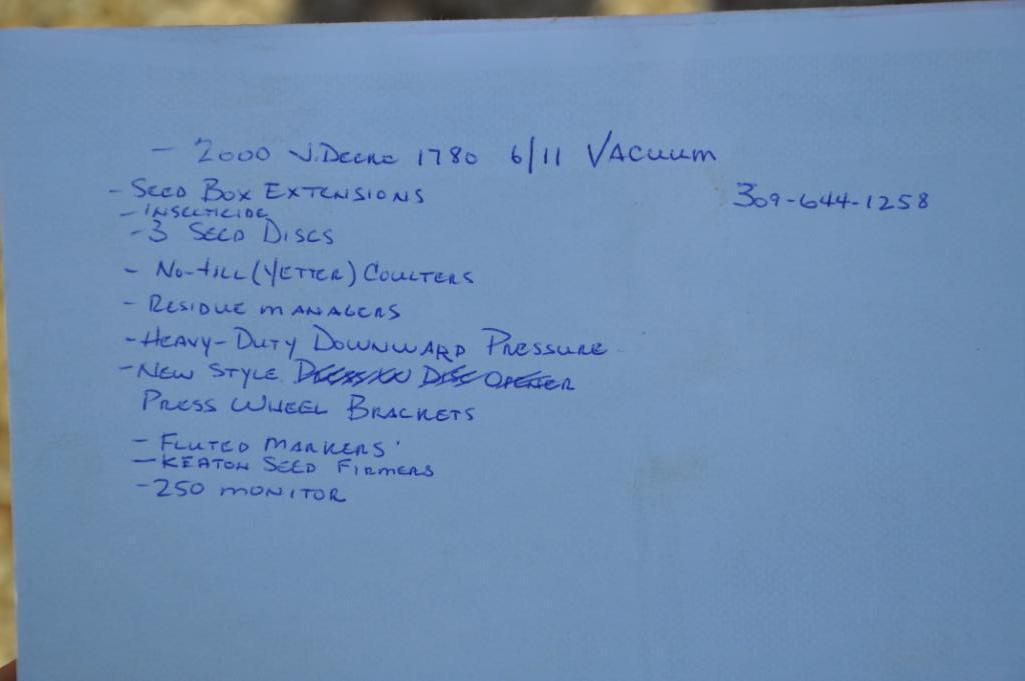 - 2000 J. Deere 1780 6/11 Vacuum
- Seed Box Extensions
309-644-1258
- Insecticide
- 3 Seed Discs
- No-till (Yetter) Coulters
- Residue managers
- Heavy-Duty Downward Pressure
- New Style
Press Wheel Brackets
- Fluted Markers
- Keaton Seed Firmers
- 250 monitor